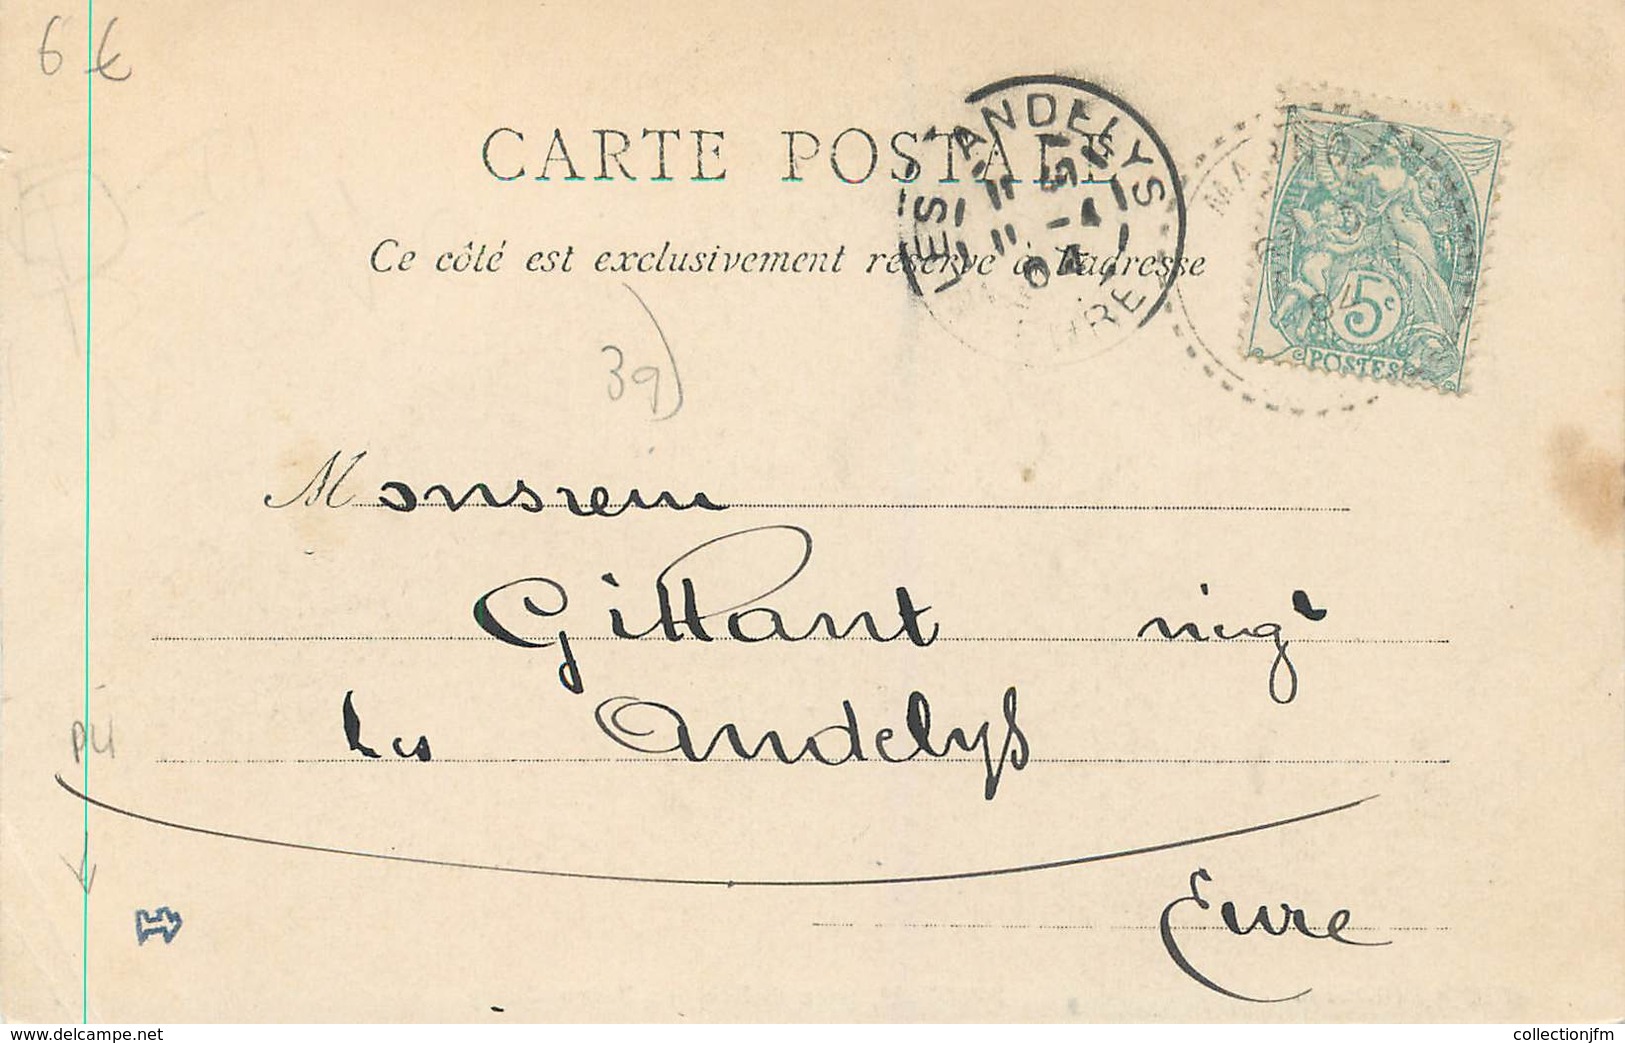 6 €
CARTE POSTALE
Ce côté est exclusivement réservé à l'adresse
LES ANDELYS
EURE
04
5c
POSTES
39
Monsieur
Gillant négt
Les Andelys
P4
Eure
www.delcampe.net
collectionjfm